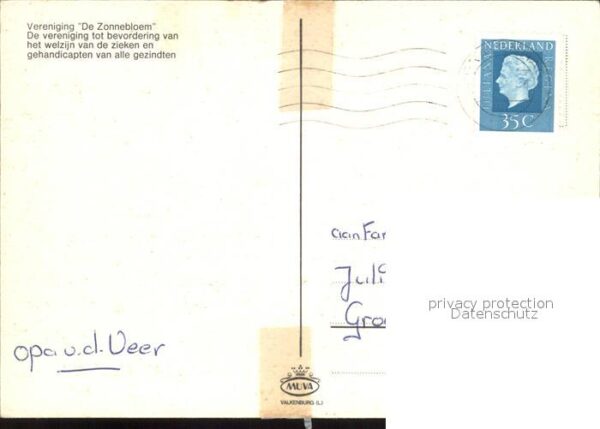 Vereniging "De Zonnebloem"
De vereniging tot bevordering van
het welzijn van de zieken en
gehandicapten van alle gezindten
NEDERLAND
JULIANA REGINA
35C
aan Fam
Juli
Gro
privacy protection
Datenschutz
opa v.d. Veer
MUVA
VALKENBURG (L.)